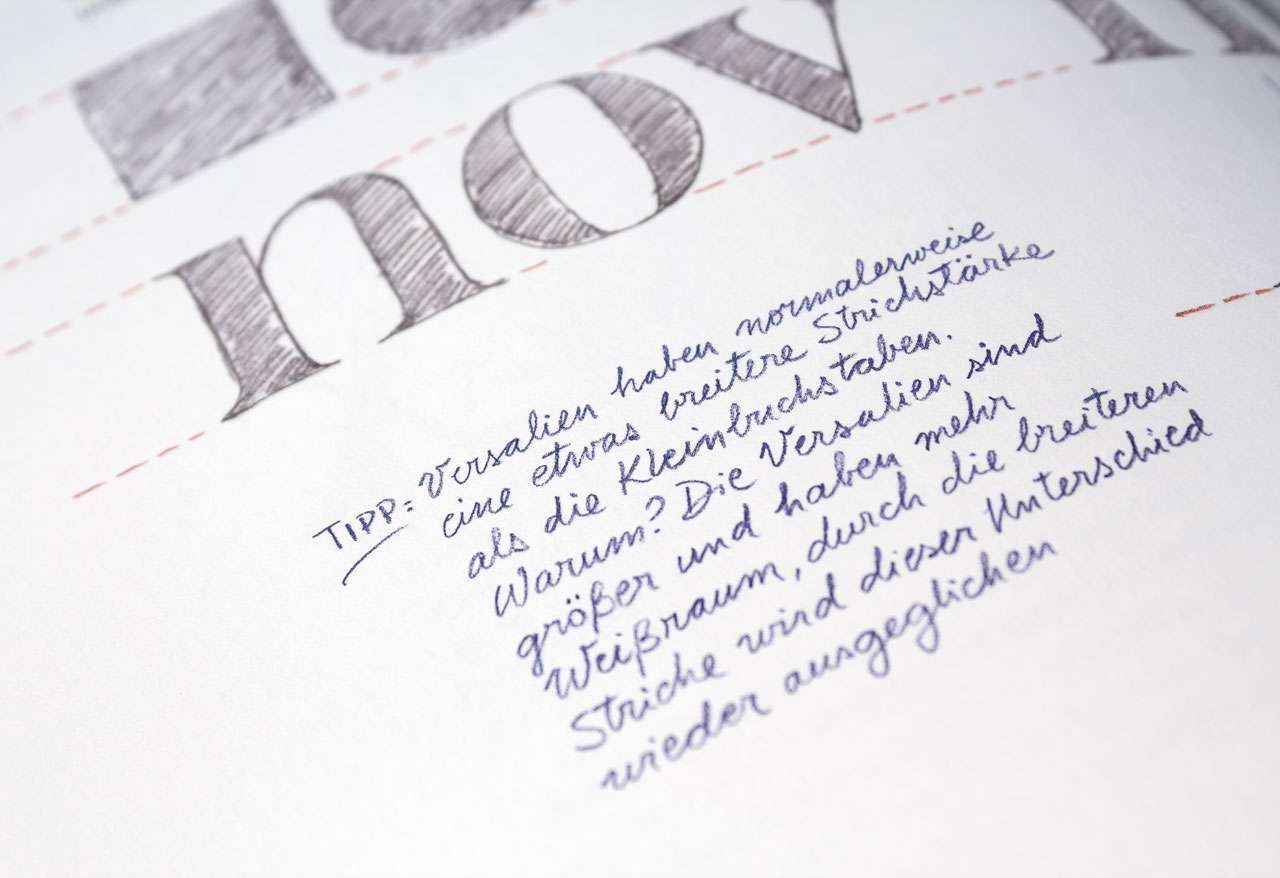 nov
TIPP: Versalien haben normalerweise
eine etwas breitere Strichstärke
als die Kleinbuchstaben.
Warum? Die Versalien sind
größer und haben mehr
Weißraum, durch die breiteren
Striche wird dieser Unterschied
wieder ausgeglichen